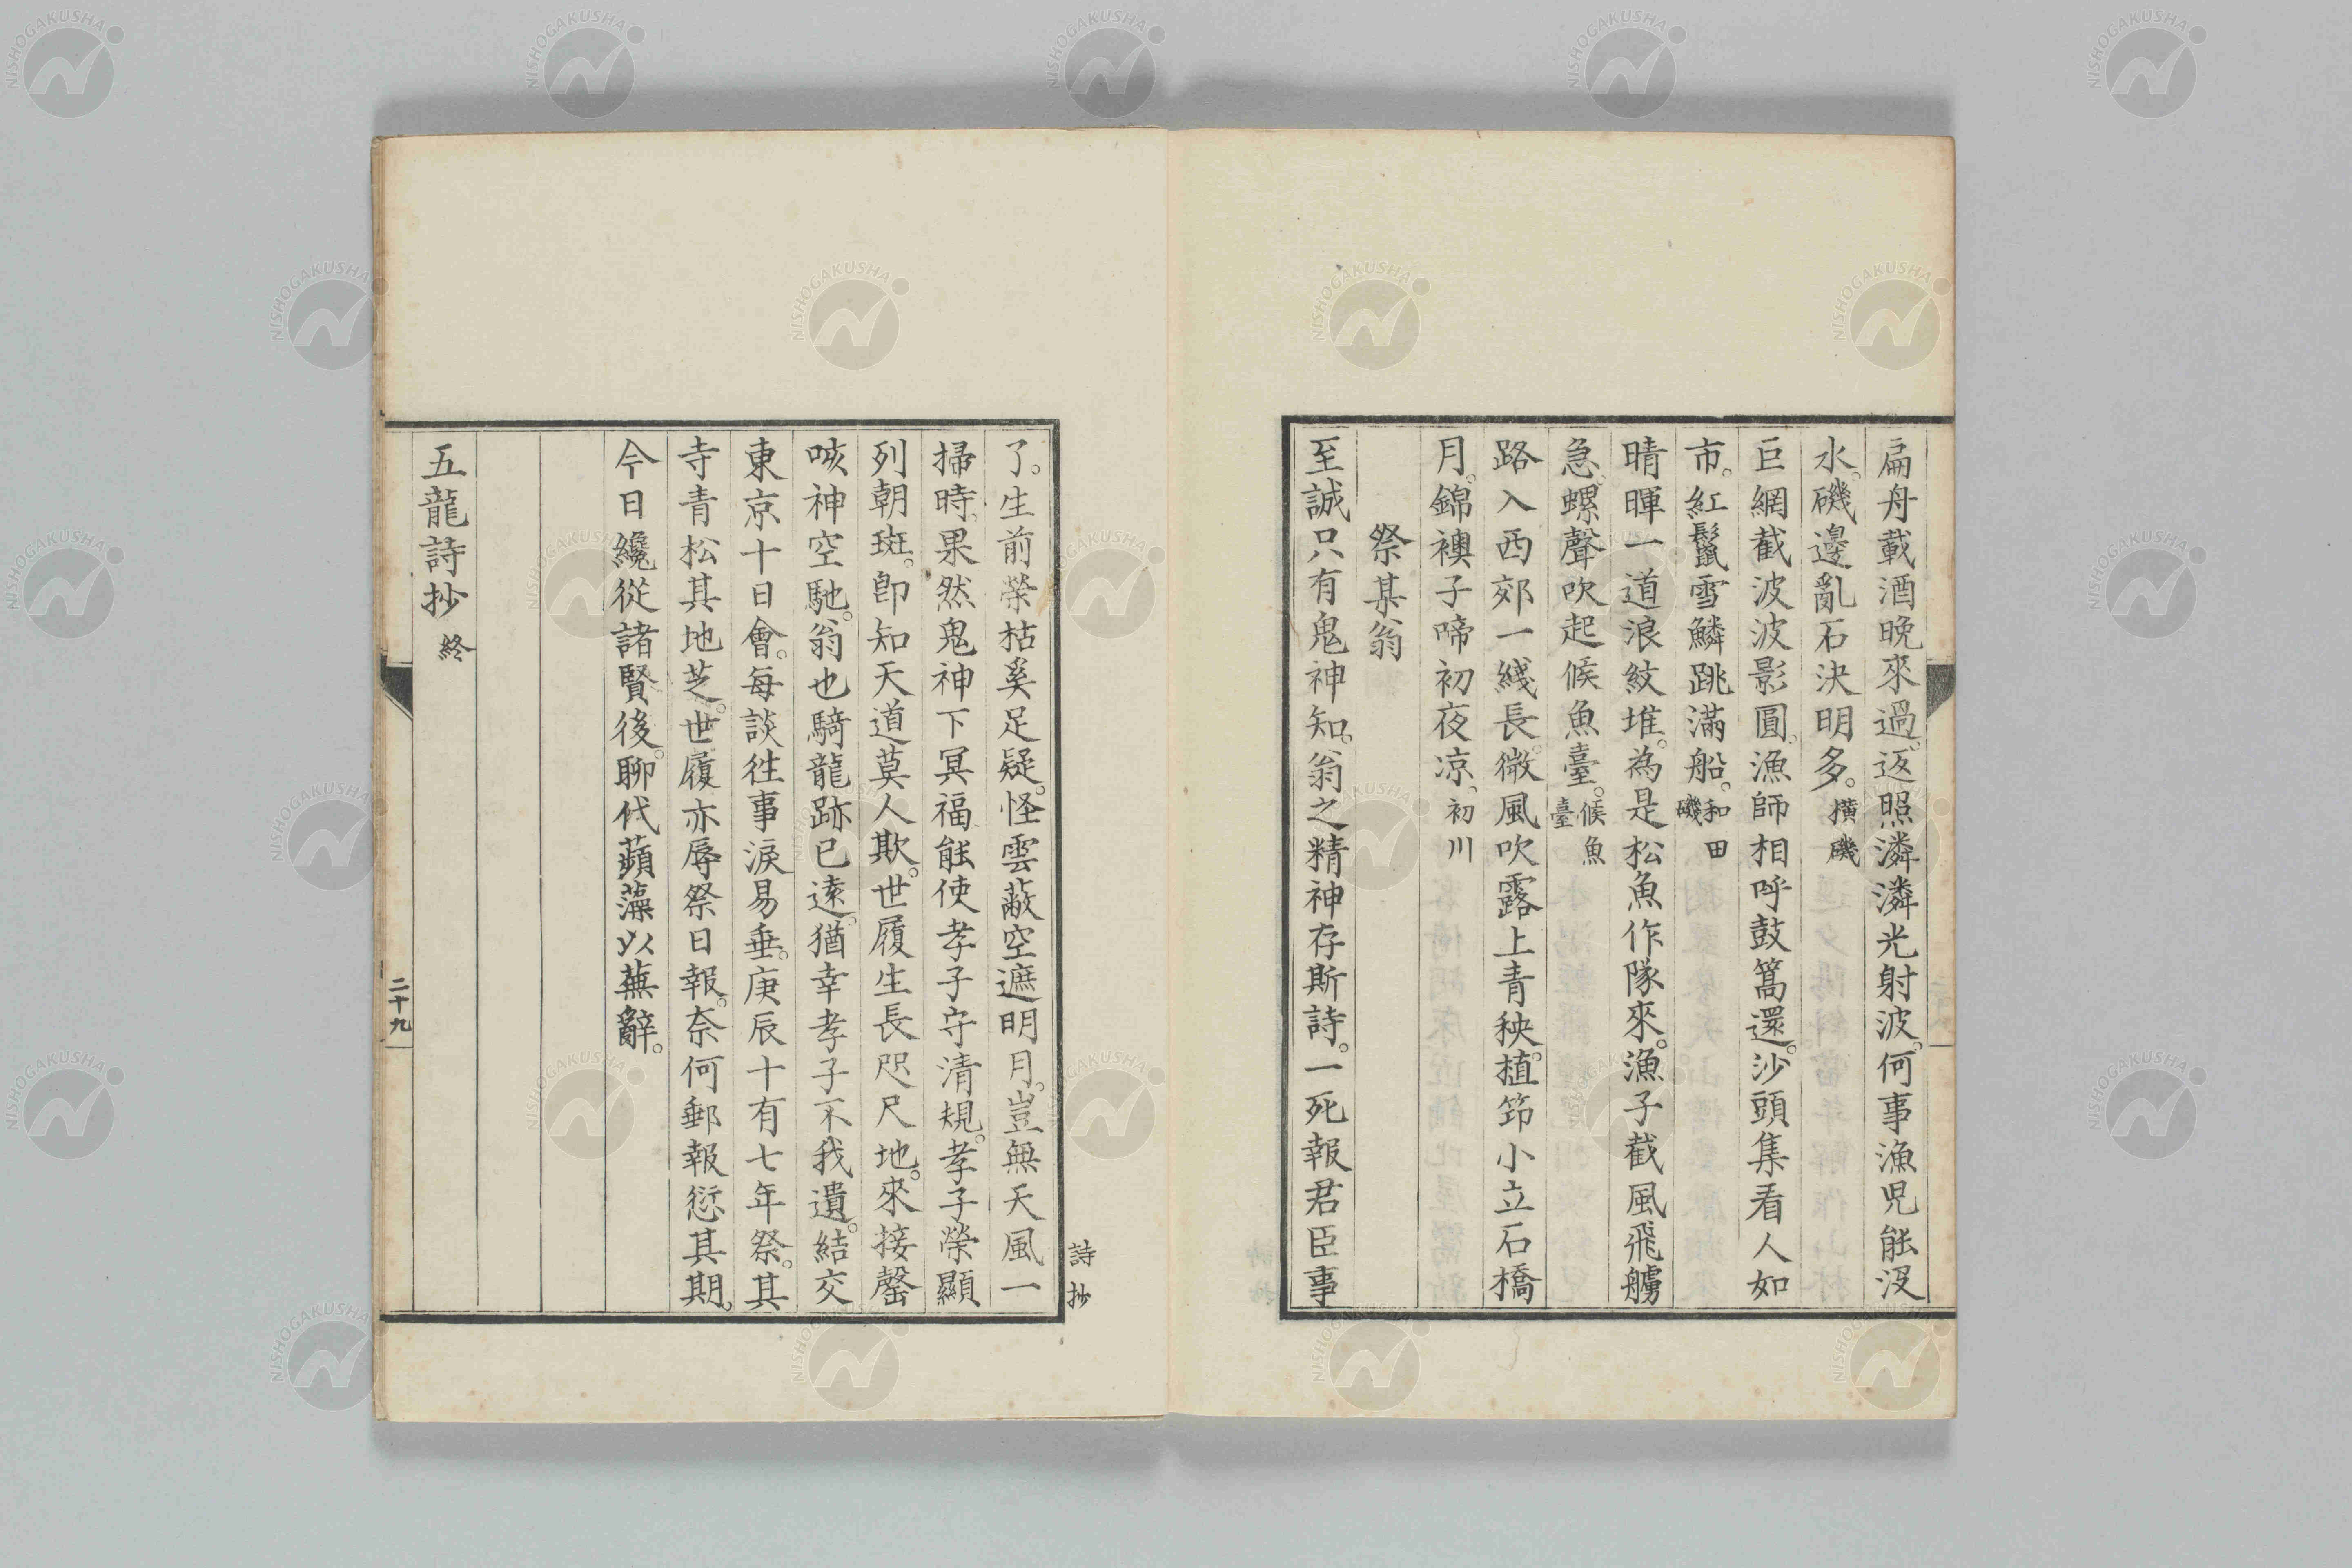 扁舟載酒晚來過。返照潾潾光射波。何事漁兒能沒
水。磯邊亂石決明多。橫磯
巨網截波波影圓。漁師相呼鼓篙還。沙頭集看人如
市。紅鬣雪鱗跳滿船。和田磯
晴暉一道浪紋堆。為是松魚作隊來。漁子截風飛艣
急。螺聲吹起候魚臺。候魚臺
路入西郊一綫長。微風吹露上青秧。植筇小立石橋
月。錦襖子啼初夜凉。初川
祭某翁
至誠只有鬼神知。翁之精神存斯詩。一死報君臣事
了。生前榮枯奚足疑。怪雲蔽空遮明月。豈無天風一
掃時。果然鬼神下冥福。能使孝子守清規。孝子榮顯
列朝班。即知天道莫人欺。世履生長咫尺地。來接罄
咳神空馳。翁也騎龍跡已遠。猶幸孝子不我遺。結交
東京十日會。每談往事淚易垂。庚辰十有七年祭。其
寺青松其地芝。世履亦辱祭日報。奈何郵報愆其期。
今日纔從諸賢後。聊代蘋藻以蕪辭。
五龍詩抄 終
二十九
詩抄
NISHOGAKUSHA